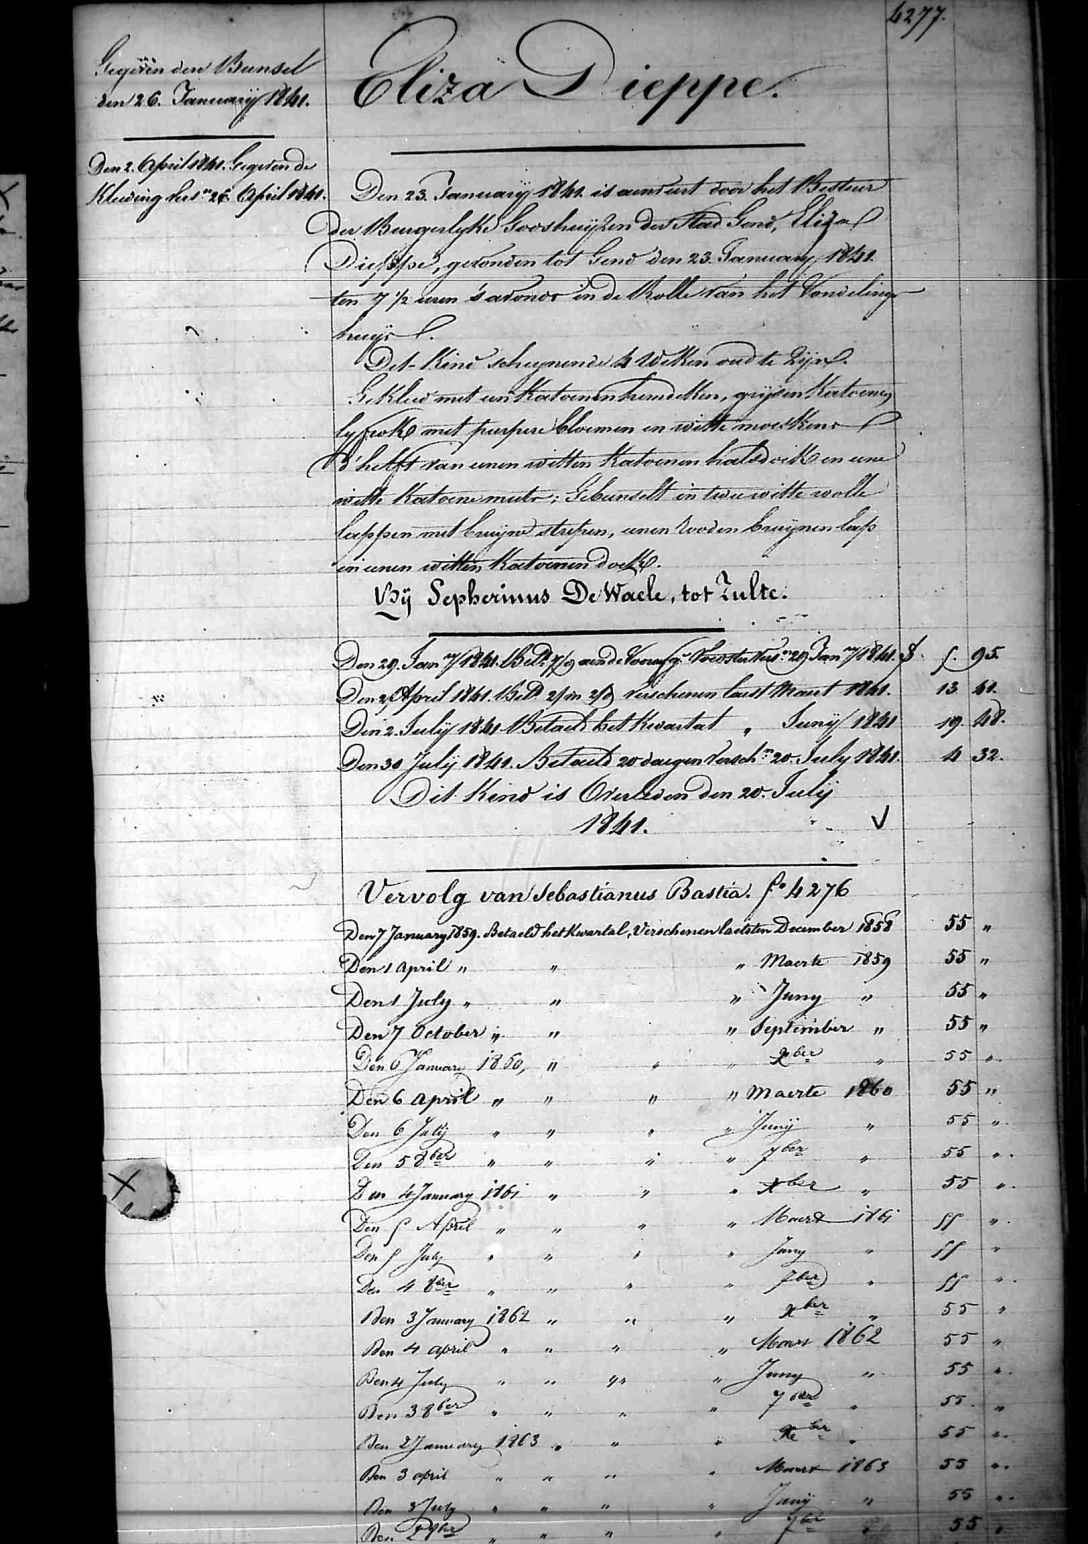 4277.
Gegeven den Bunsel
den 26. Januarij 1841.
Den 2. April 1841. Gegeven de
Kleeding her.n 26 April 1841.
Eliza Dieppe.
Den 23. Januarij 1841. is aenveert door het Bestuer
der Burgerlyke Godshuyzen der Stad Gend, Eliza
Dieppe, gevonden tot Gend den 23. January 1841.
ten 7 1/2 uren 's avonds in de Rolle van het Vondeling-
huijs.
Dit Kind scheynende 4 Weken oud te Zijn.
Gekleed met een Katoenen hemdeken, grijsen Katoenen
lyfrok met purpere bloemen en witte moeskens
d'helft van eenen witten Katoenen halsdoek en eene
witte Katoene muts; Gebunselt in twee witte wolle
lappen met bruyne strepen, eenen rooden bruynen lap
in eenen witten Katoenen doek.
Bij Sepherinus De Waele, tot Zulte.
Den 29. Jan.ry 1841. Bet. aen de 29 Jan.ry 1841. f. 95.
Den April 1841. Bet. verschenen laest Maert 1841. 13 41.
Den 2. Julij 1841 Betaeld het Kwartaal „ Junij 1841 19. 48.
Den 30 Julij 1841. Betaeld 20 daegen versch.n 20. July 1841. 4 32.
Dit Kind is Overleden den 20. Julij
1841.
Vervolg van Sebastianus Bastia. f° 4276
Den 7 January 1859. Betaeld het Kwartal, Verschenen laetsten December 1858 55 „
Den 1 April „ „ „ Maerte 1859 55 „
Den 1 July „ „ „ Juny „ 55 „
Den 7 October „ „ „ September „ 55 „
Den 6 Januarij 1860, „ „ „ Xber „ 55 „
Den 6 April „ „ „ „ Maerte 1860 55 „
Den 6 Julij „ „ „ „ Junij „ 55 „
Den 5 8ber „ „ „ „ 7ber „ 55 „
Den 4 January 1861 „ „ „ Xber „ 55 „
Den 5 April „ „ „ „ Maert 1861 55 „
Den 5 July „ „ „ „ Juny „ 55 „
Den 4 8ber „ „ „ „ 7ber „ 55 „
Den 3 January 1862 „ „ „ Xber „ 55 „
Den 4 april „ „ „ „ Maert 1862 55 „
Den 4 July „ „ „ „ Juny „ 55 „
Den 3 8ber „ „ „ „ 7ber „ 55 „
Den 2 January 1863 „ „ „ Xber „ 55 „
Den 3 april „ „ „ „ Maert 1863 55 „
Den 3 July „ „ „ „ Junij „ 55 „
Den 2 8ber „ „ „ „ 7ber „ 55 „